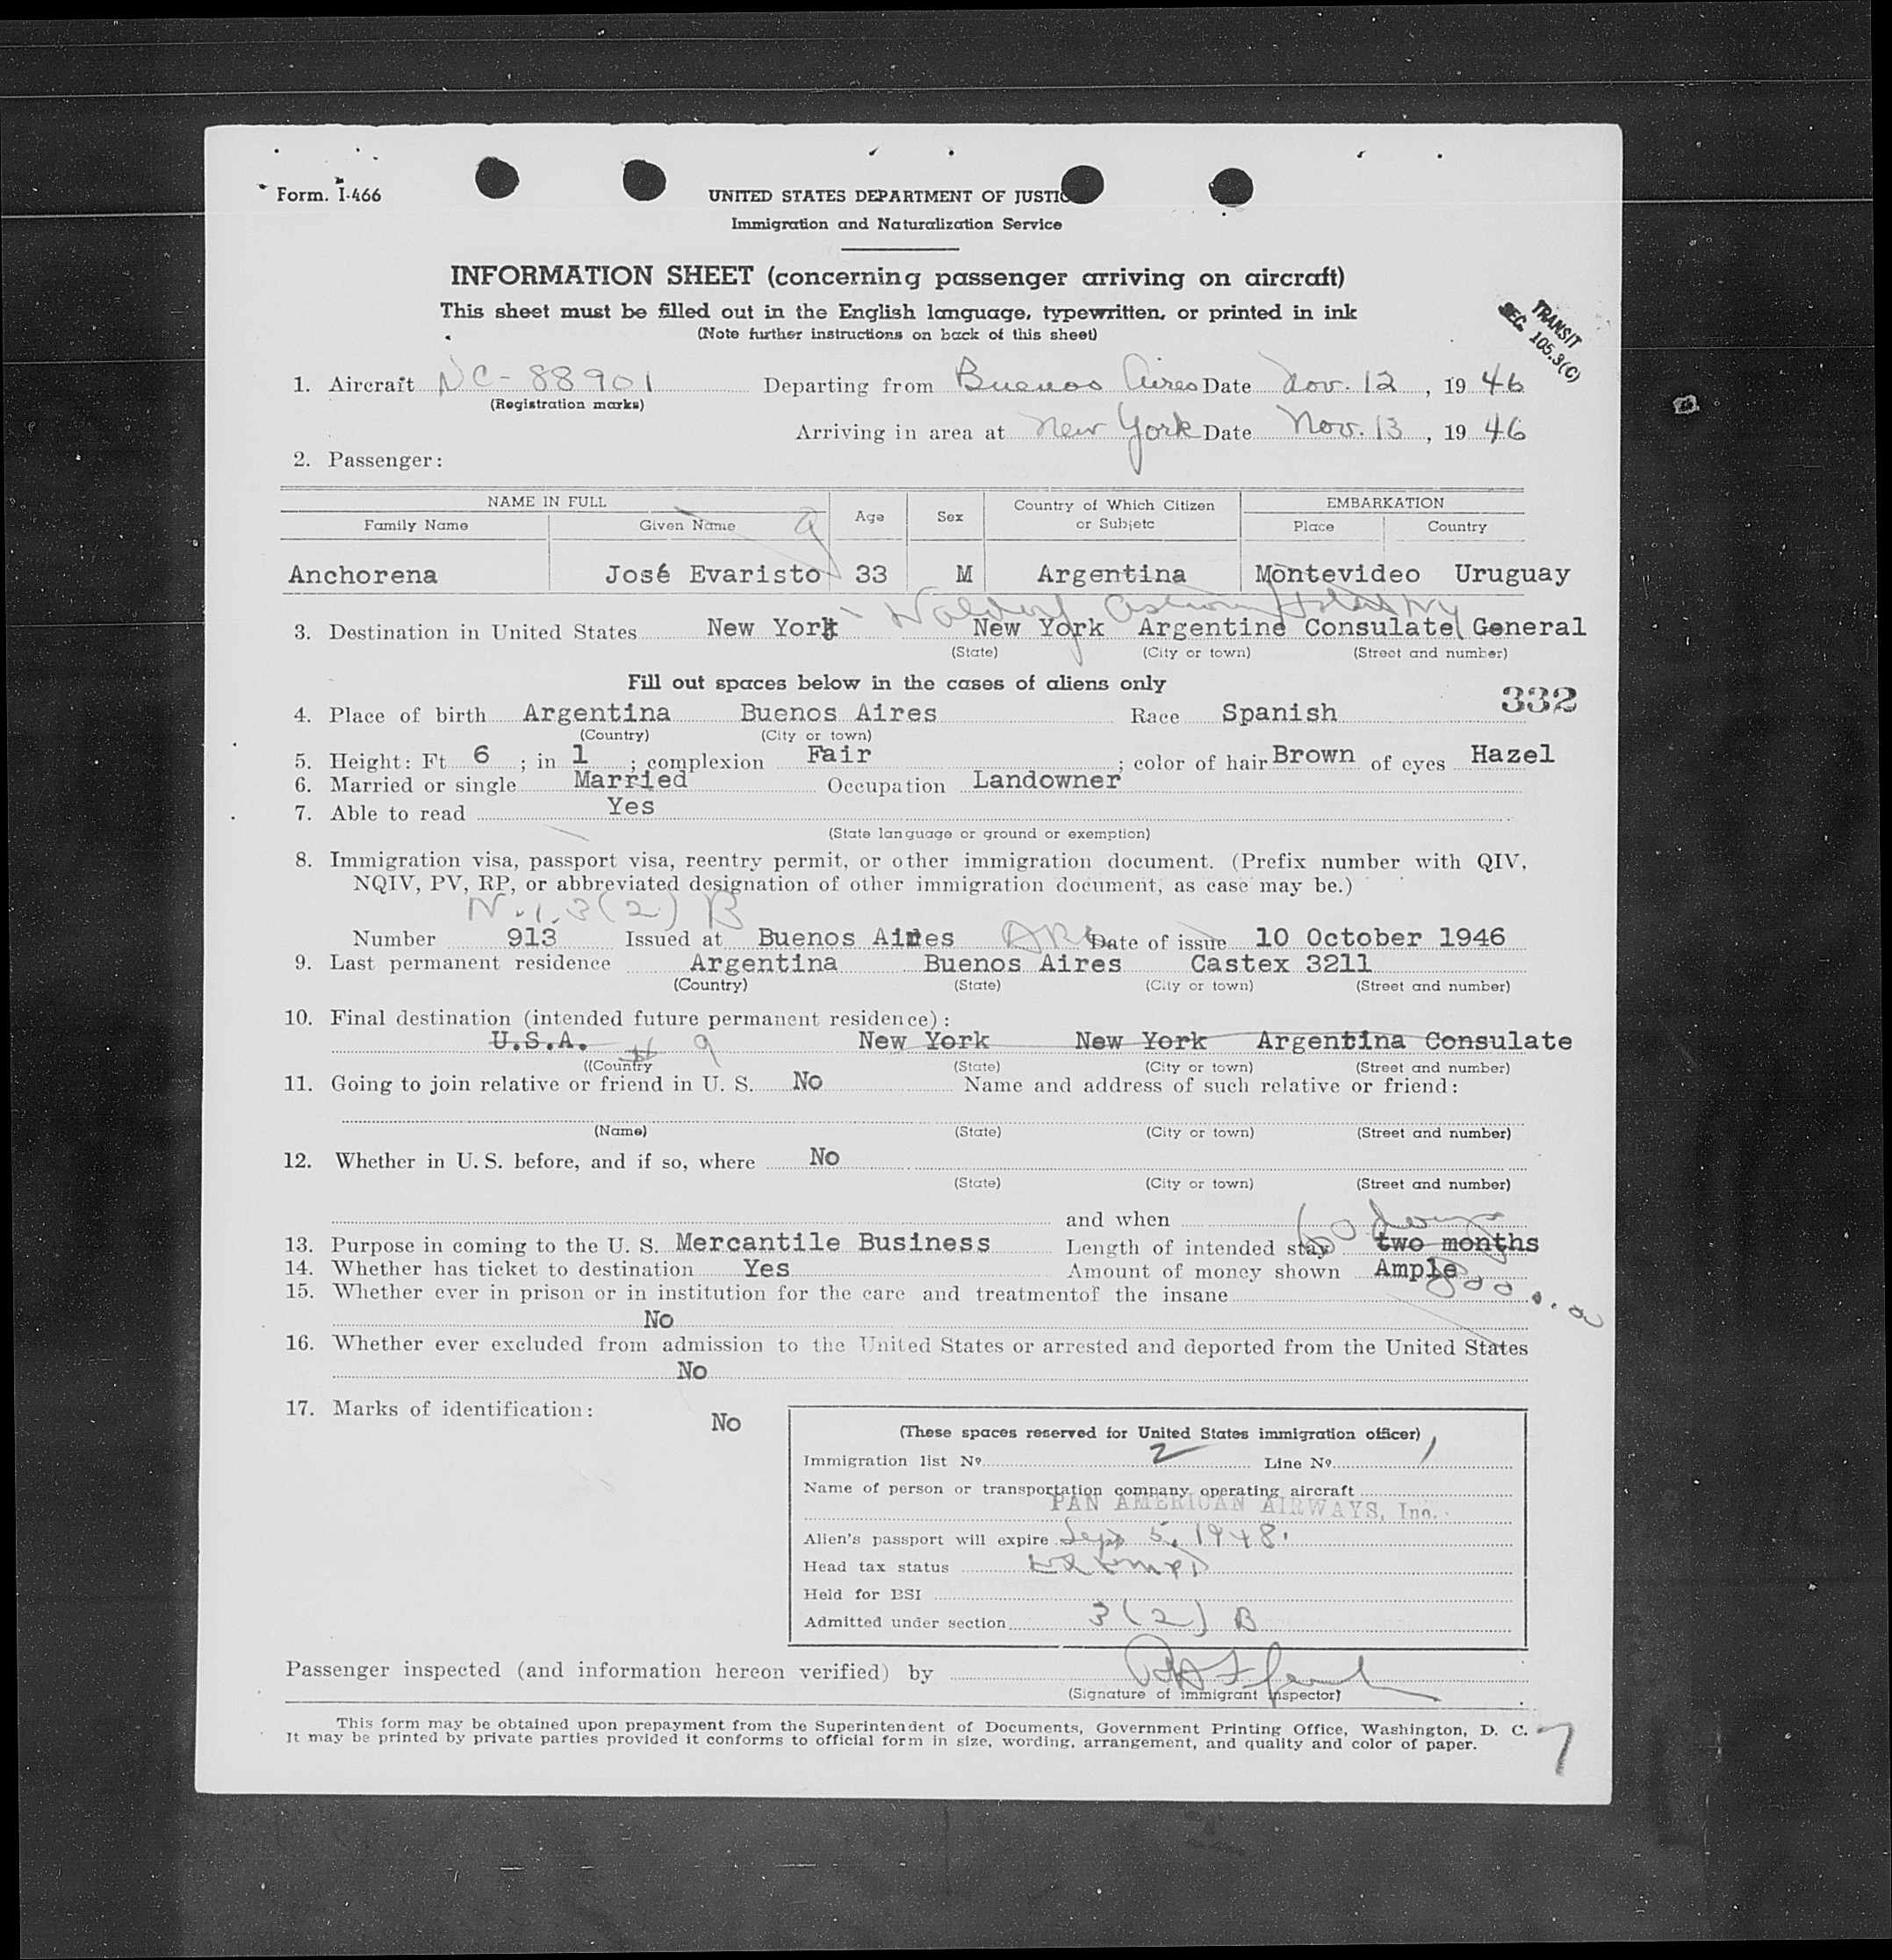 Form. I-466
UNITED STATES DEPARTMENT OF JUSTIC
Immigration and Naturalization Service
INFORMATION SHEET (concerning passenger arriving on aircraft)
This sheet must be filled out in the English language, typewritten, or printed in ink
(Note further instructions on back of this sheet)
TRANSIT
SEC. 105.3(C)
1. Aircraft NC-88901 Departing from Buenos Aires Date Nov. 12, 1946
(Registration marks)
Arriving in area at New York Date Nov. 13, 1946
2. Passenger:
NAME IN FULL Age Sex Country of Which Citizen or Subjetc EMBARKATION
Family Name Given Name Place Country
Anchorena José Evaristo 33 M Argentina Montevideo Uruguay
Waldorf Astoria Hotel NY
3. Destination in United States New York New York Argentine Consulate General
(State) (City or town) (Street and number)
Fill out spaces below in the cases of aliens only
332
4. Place of birth Argentina Buenos Aires Race Spanish
(Country) (City or town)
5. Height: Ft 6 ; in 1 ; complexion Fair ; color of hair Brown of eyes Hazel
6. Married or single Married Occupation Landowner
7. Able to read Yes
(State language or ground or exemption)
8. Immigration visa, passport visa, reentry permit, or other immigration document. (Prefix number with QIV,
NQIV, PV, RP, or abbreviated designation of other immigration document, as case may be.)
N.I. 3(2) B
Number 913 Issued at Buenos Aires Date of issue 10 October 1946
9. Last permanent residence Argentina Buenos Aires Castex 3211
(Country) (State) (City or town) (Street and number)
10. Final destination (intended future permanent residence):
U.S.A. New York New York Argentina Consulate
((Country (State) (City or town) (Street and number)
11. Going to join relative or friend in U. S. No Name and address of such relative or friend:
(Name) (State) (City or town) (Street and number)
12. Whether in U. S. before, and if so, where No
(State) (City or town) (Street and number)
and when
60 days
13. Purpose in coming to the U. S. Mercantile Business Length of intended stay two months
14. Whether has ticket to destination Yes Amount of money shown Ample
15. Whether ever in prison or in institution for the care and treatmentof the insane
No
16. Whether ever excluded from admission to the United States or arrested and deported from the United States
No
17. Marks of identification: No
(These spaces reserved for United States immigration officer)
Immigration list Nº 2 Line Nº 1
Name of person or transportation company operating aircraft
PAN AMERICAN AIRWAYS, Inc.
Alien's passport will expire Sept 5, 1948.
Head tax status Exempt
Held for BSI
Admitted under section 3(2) B
Passenger inspected (and information hereon verified) by
(Signature of immigrant inspector)
This form may be obtained upon prepayment from the Superintendent of Documents, Government Printing Office, Washington, D. C.
It may be printed by private parties provided it conforms to official form in size, wording, arrangement, and quality and color of paper.
7